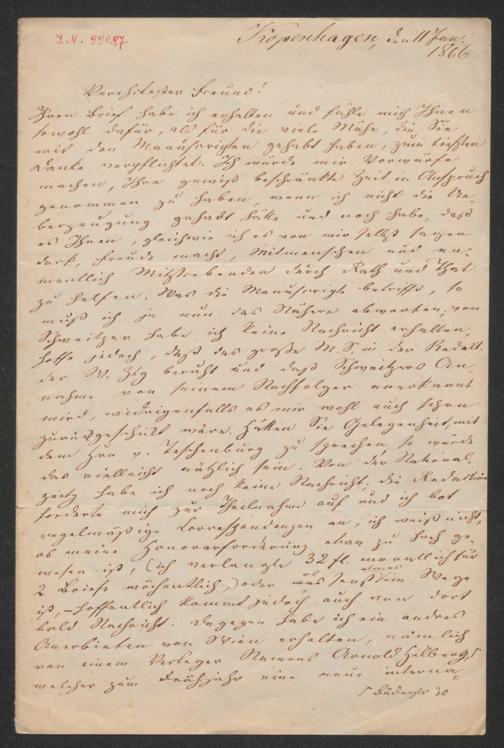 J.N. 99087
Kopenhagen, den 11 Jan.
1866
Verehrtester Freund!
Ihren Brief habe ich erhalten und fühle mich Ihnen
sowohl dafür, als für die viele Mühe, die Sie
mit den Manuscripten gehabt haben, zum besten
Danke verpflichtet. Ich würde mir Vorwürfe
machen, Ihre gewiß beschränkte Zeit in Anspruch
genommen zu haben, wenn ich nicht die Ue-
berzeugung gehabt hätte und noch habe, daß
es Ihnen, gleichwie ich es von mir selbst sagen
darf, Freude macht, Mitmenschen und na-
mentlich Mitstrebenden durch Rath und That
zu helfen. Was die Manuscripte betrifft, so
muß ich ja nun das Nähere abwarten; von
Schweitzer habe ich keine Nachricht erhalten,
hoffe jedoch, daß das große M.S. in der Redakt.
der W. Ztg beruht und daß Schweitzers An-
nahme von seinem Nachfolger anerkannt
wird, widrigenfalls es mir wohl auch schon
zurückgeschickt wäre. Hätten Sie Gelegenheit, mit
dem Hrn v. Teschenburg zu sprechen, so würde
das vielleicht nützlich sein. Von der National-
zeitg habe ich noch keine Nachricht; die Redaction
forderte mich zur Theilnahme auf und ich bot
regelmäßige Correspondenzen an, ich weiß nicht,
ob meine Honorarforderung etwa zu hoch ge-
wesen ist, (ich verlangte 32 fl. monatlich für
2 Briefe wöchentlich,) oder was sonst im Wege
ist, – hoffentlich kommt jedoch auch von dort
bald Nachricht. Dagegen habe ich ein andres
Anerbieten von Wien erhalten, nämlich
von einem Verleger Namens Arnold Hilberg,
welcher zum Frühjahr eine neue interna-